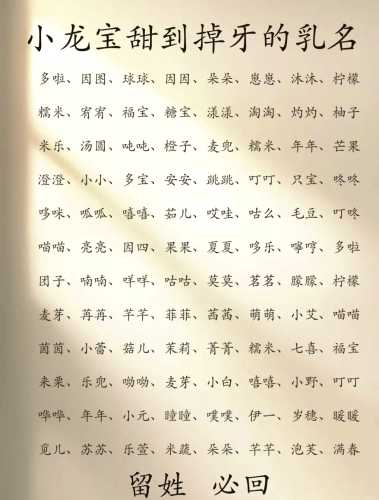 小龙宝甜到掉牙的乳名
多啦、因图、球球、因因、朵朵、崽崽、沐沐、柠檬
糯米、宥宥、福宝、糖宝、漾漾、淘淘、灼灼、柚子
米乐、汤圆、吨吨、橙子、麦兜、糯米、年年、芒果
澄澄、小小、多宝、安安、跳跳、叮叮、只宝、咚咚
哆咪、呱呱、嘻嘻、茹儿、哎哇、咕么、毛豆、叮咚
喵喵、亮亮、因四、果果、夏夏、哆乐、嘟哼、多啦
团子、喃喃、咩咩、咕咕、莫莫、茗茗、朦朦、柠檬
麦芽、苒苒、芊芊、菲菲、茜茜、萌萌、小艾、喵喵
茵茵、小蕾、菇儿、茉莉、菁菁、糯米、七喜、福宝
来栗、乐兜、呦呦、麦芽、小白、嘻嘻、小野、叮叮
哗哗、年年、小元、瞳瞳、噗噗、伊一、岁穗、暖暖
觅儿、苏苏、乐萱、米蔬、朵朵、芊芊、泡芙、满春
留姓 必回